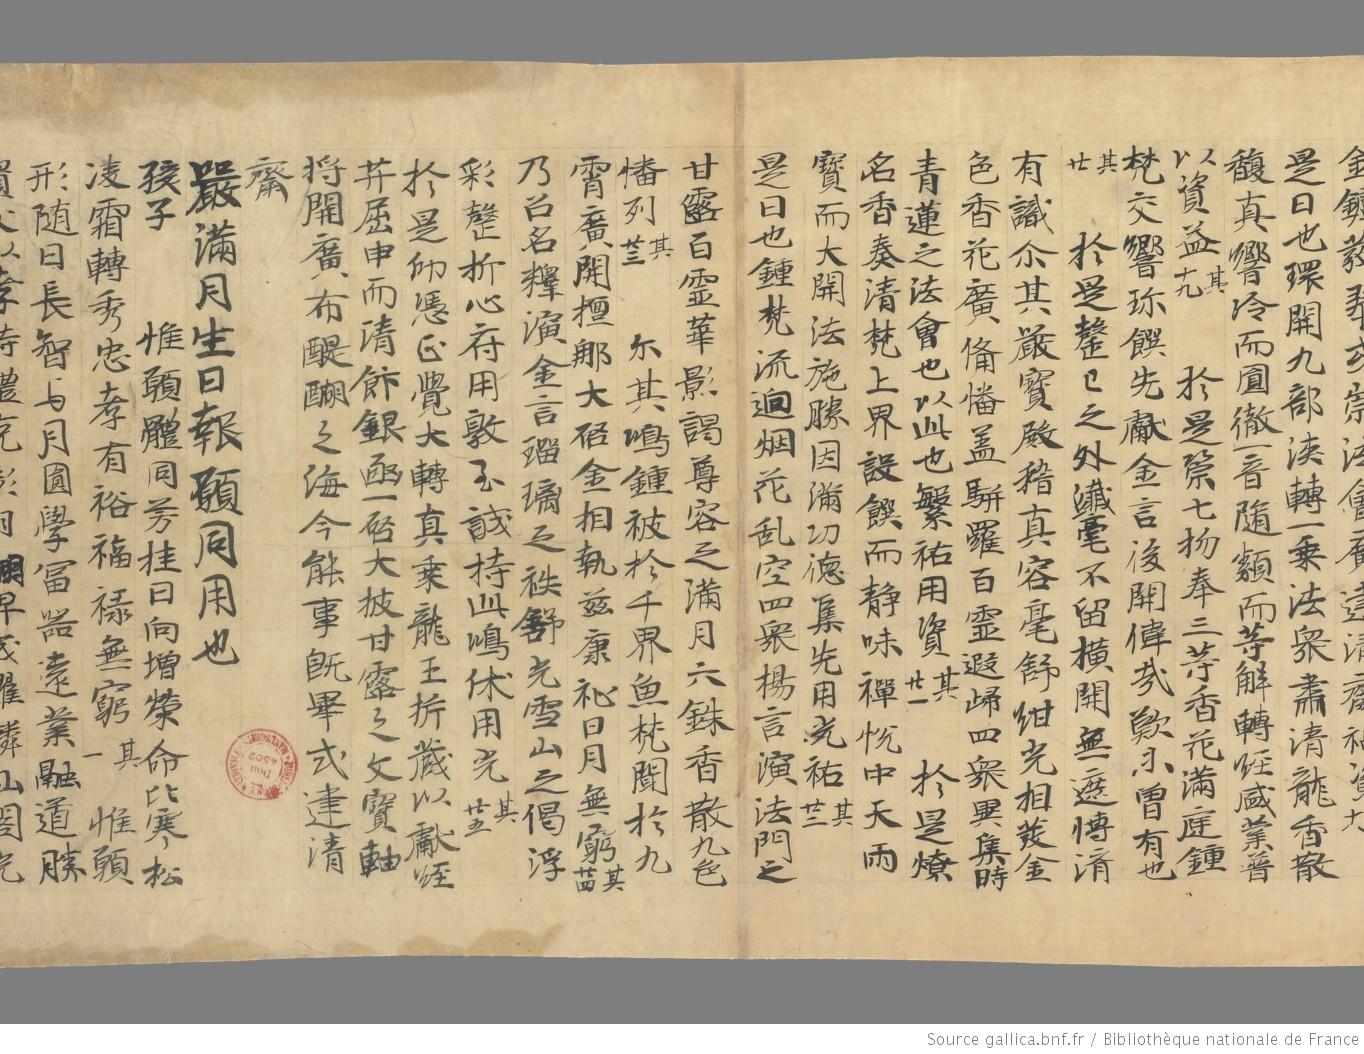 是日也環開九部浹轉一乗法衆肅清龍香散
馥真響冷而圓徹一音隨類而等解轉經咸業普
以資益其十九 於是築七扬奉三等香花滿庭鍾
梵交響珎饌先獻金言後開偉哉歎未曾有也
其廿 於是聲已之外瀸毫不留橫開無遮愽濟
有識尒其嚴寶殿稽真容毫舒紺光相發金
色香花廣俻幡盖駢羅百靈遐歸四衆畢集時
青蓮之法會也以此也繄祐用資其廿一 於是燎
名香奏清梵上界設饌而静味禪恱中天雨
寶而大開法施勝因滿功德集先用光祐其廿二
是日也鍾梵流迴烟花乱空四衆楊言演法門之
甘露百靈華影謁尊容之滿月六銖香散九色
幡列其廿三 尓其鳴鍾被於千界魚梵聞於九
霄廣開擅那大啓金相執兹康祀日月無窮其廿四
乃召名糧演金言瑠璃之袟舒光雪山之偈浮
彩聲折心府用敦至誠持此鴻休用光其廿五
於是仰憑正覺大轉真乗龍王折藏以獻經
芥屈申而清飾銀函一啓大披甘露之文寶軸
将開廣布醍醐之海今能事旣畢式建清
齋
嚴滿月生日報願同用也
孩子 惟願體同芳桂日向增榮命比寒松
凌霜轉秀忠孝有裕福祿無窮其一 惟願
形随日長智与月圓學冨器遠業融道勝
Source gallica.bnf.fr / Bibliothèque nationale de France